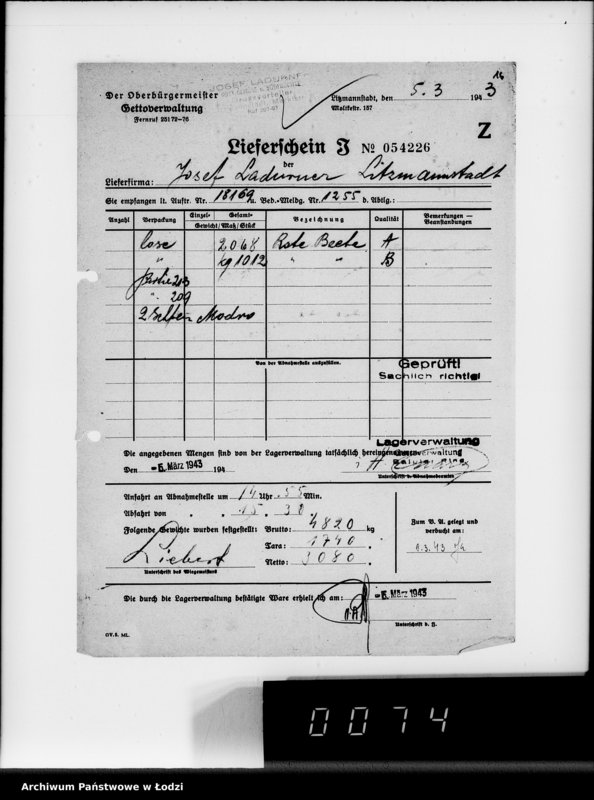 16
JOSEF LADURNER
Der Oberbürgermeister
Gettoverwaltung
Fernruf 25172–76
Litzmannstadt, den 5.3 1943
Moltkestr. 157
Z
Lieferschein J № 054226
der
Lieferfirma: Josef Ladurner Litzmannstadt
Sie empfangen lt. Auftr. Nr. 18169 Bed.-Meldg. Nr. 1255 d. Abtlg.:
Anzahl Verpackung Einzel- Gesamt- Bezeichnung Qualität Bemerkungen – Beanstandungen
Gewicht/Maß/Stück
lose 2068 Rote Beete A
" kg 1012 " " B
213
" 209
Von der Abnahmestelle auszufüllen.
Geprüft!
Sachlich richtig!
Lagerverwaltung
Die angegebenen Mengen sind von der Lagerverwaltung tatsächlich hereingenommen
Den -5. März 1943 194
Unterschrift d. Abnahmebeamten
Anfahrt an Abnahmestelle um 14 Uhr 55 Min.
Abfahrt von " " 15 " 30 "
Folgende Gewichte wurden festgestellt: Brutto: 4820 kg
Tara: 1740 "
Netto: 3080 "
Liebert
Unterschrift des Wiegemeisters
Zum B. A. gelegt und
verbucht am:
Die durch die Lagerverwaltung bestätigte Ware erhielt ich am: -5. März 1943
Unterschrift d. J.
GV. 5. ML.
0074
Archiwum Państwowe w Łodzi